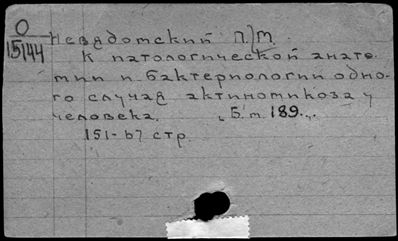 О
15144
Невядомский П./М
К патологической анато-
мии и бактериологии одно-
го случая актиномикоза у
человека. „Б. м. 189..„
151-67 стр.